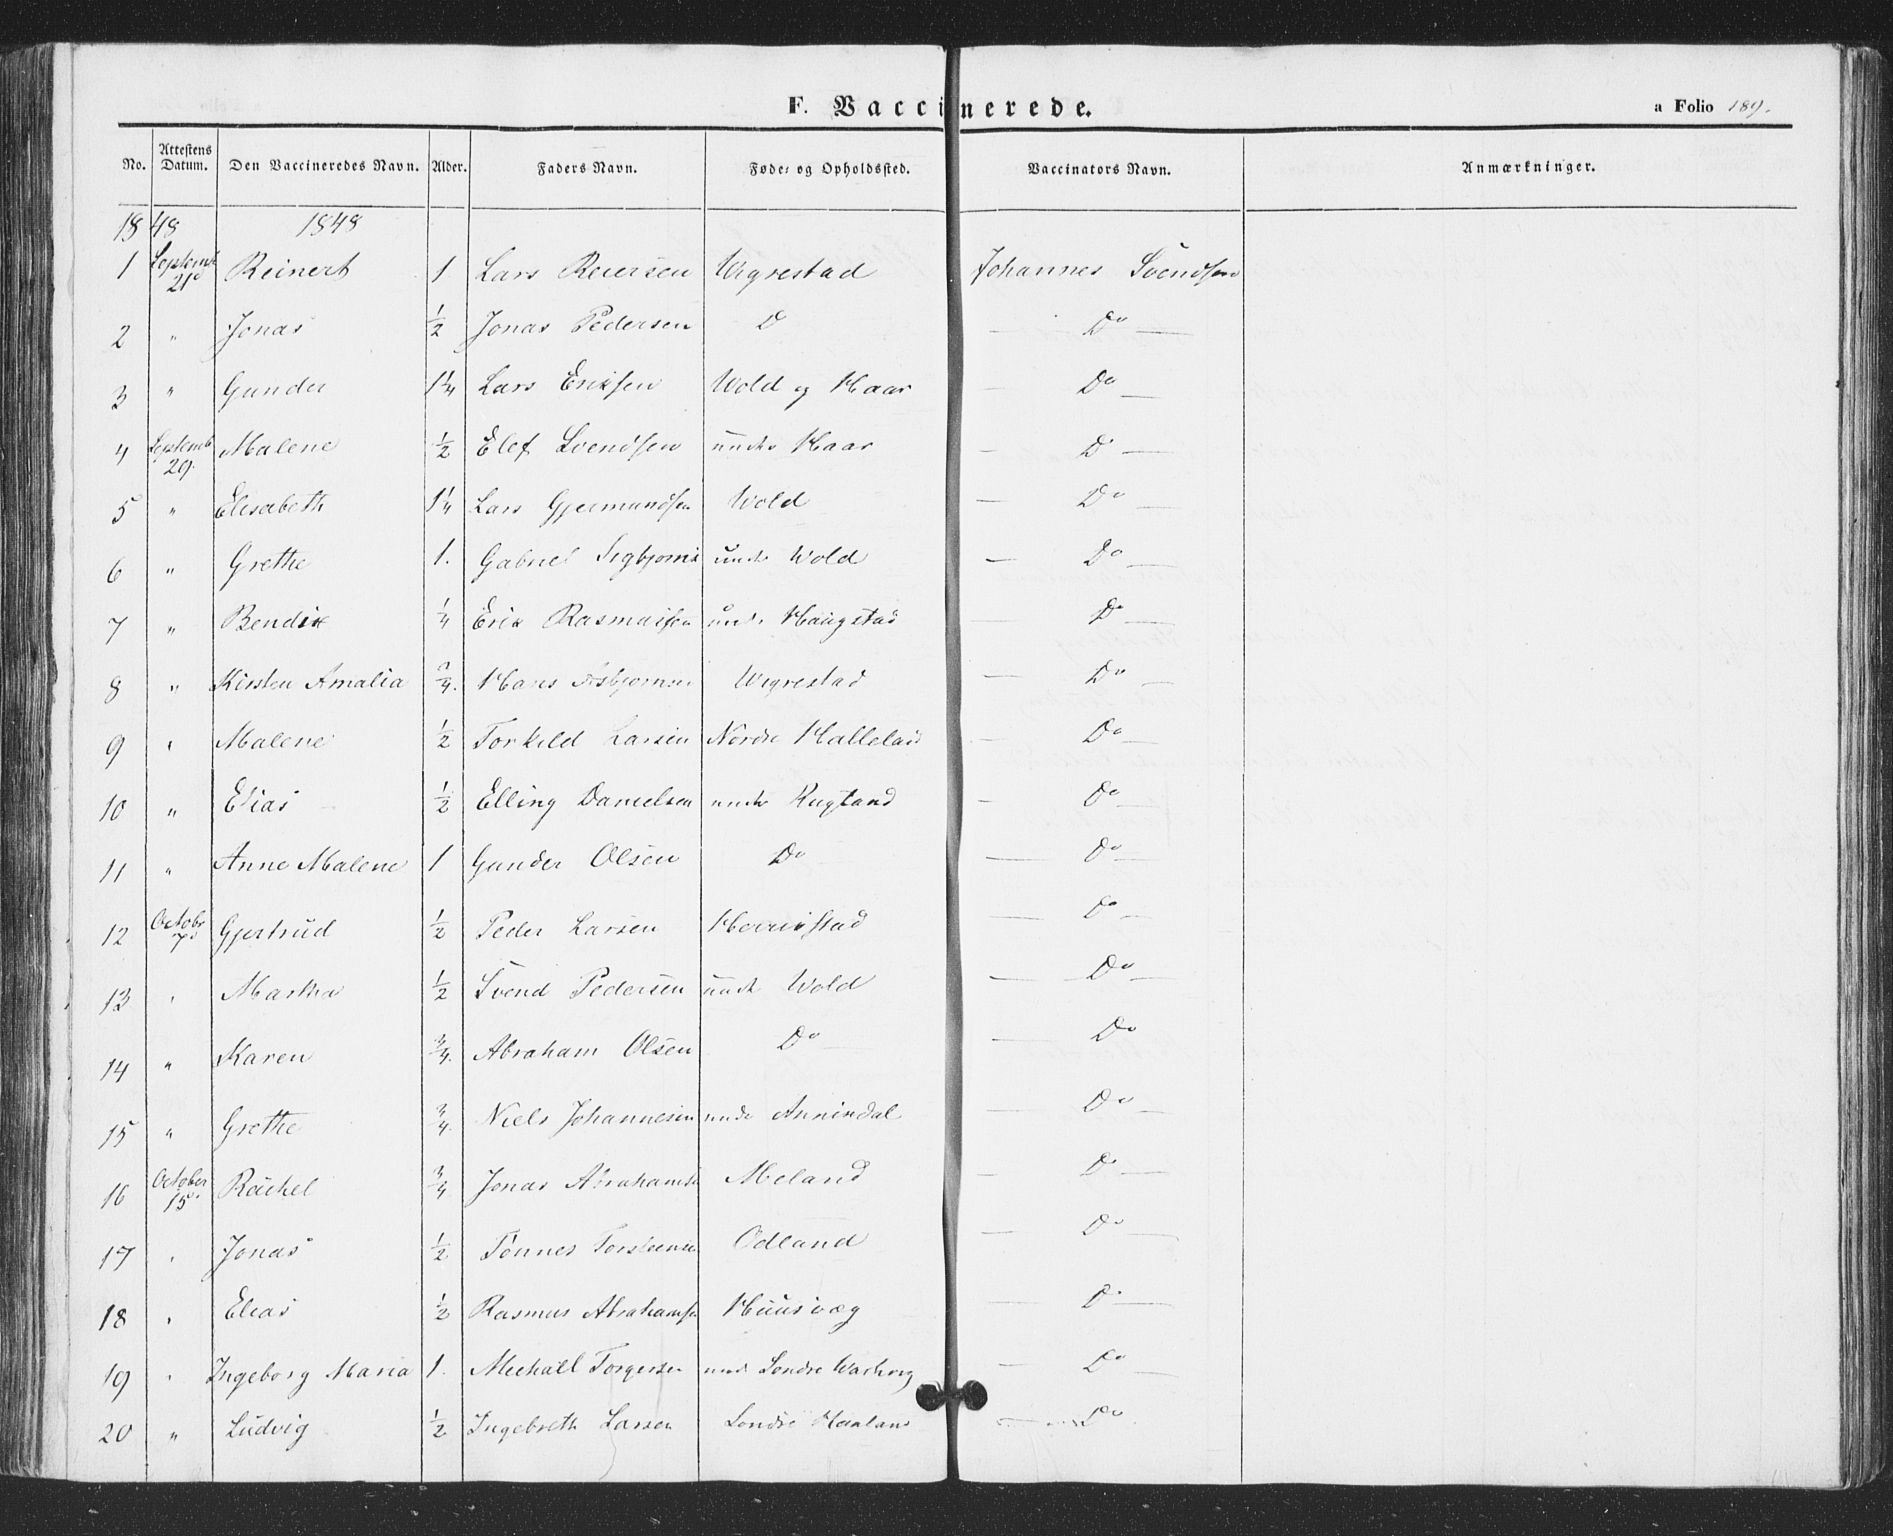 F. Vaccinerede.
a Folio 189.
No. Attestens Datum. Den Vaccineredes Navn. Alder. Faders Navn. Føde- og Opholdssted. Vaccinators Navn. Anmærkninger.
1848 1848
1 Septemb 21de Reinert 1 Lars Reiersen Wigrestad Johannes Svendsen
2 " Jonas 1/2 Jonas Pedersen D Do
3 " Gunder 1 1/4 Lars Eriksen Wold og Haar Do
4 Septemb 29. Malene 1/2 Elef Svendsen under Haar Do
5 " Elisabeth 1 1/4 Lars Gjermundsen Wold Do
6 " Grethe 1. Gabriel Sigbjørns under Wold Do
7 " Bendix 1/4 Erik Rasmussen und. Haugstad Do
8 " Kirsten Amalia 3/4. Hans Asbjørnsen Wigrestad Do
9 " Malene 1/2 Torkild Larsen Nordre Do
10 " Elias 1/2 Elling Danielsen under Rugland Do
11 " Anne Malene 1 Gunder Olsen Do Do
12 Octobr 7de Gjertrud 1/2 Peder Larsen Do
13 " Martha 1/2 Svend Pedersen under Wold Do
14 " Karen 3/4. Abraham Olsen Do Do
15 " Grethe 3/4. Niels Johannesen unde Annindal Do
16 October 15de Rachel 3/4 Jonas Abrahams Meland Do
17 " Jonas 1/2 Tønnes Torsteinsen Odland Do
18 " Elias 1/2 Rasmus Abrahamsen Huusvæg Do
19 " Ingeborg Maria 1. Michaël Torgersen und Søndre Do
20 " Ludvig 1/2 Ingebreth Larsen Søndre Do